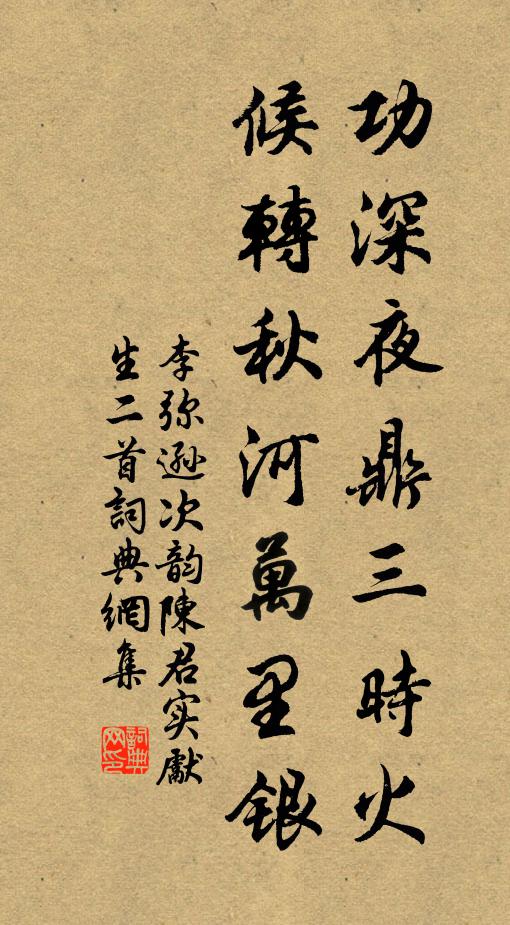 功深夜鼎三時火
候轉秋河萬里銀
李弥遜次韵陳君实獻
生二首詞典網集
詞典网印